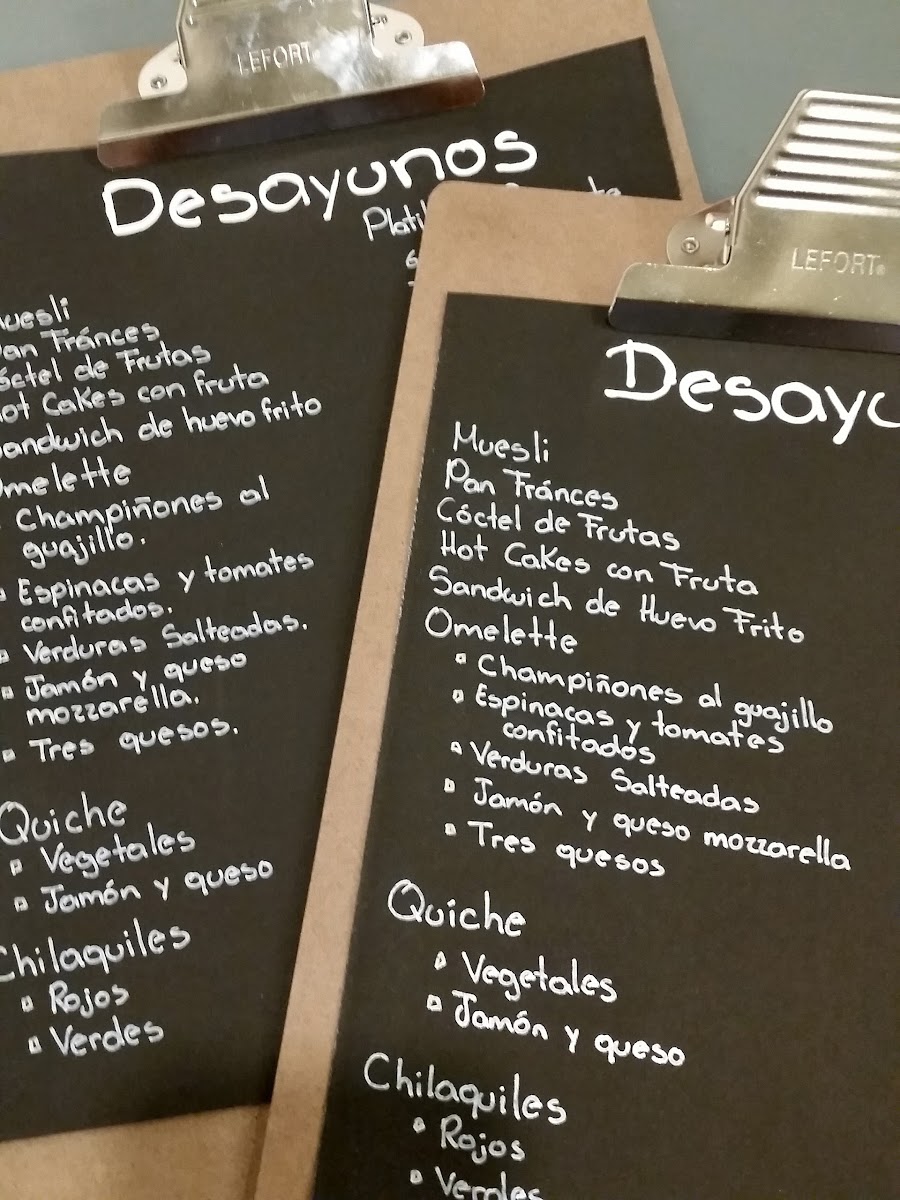 LEFORT
Desayunos
Muesli
Pan Fránces
Cóctel de Frutas
Hot Cakes con fruta
Sandwich de huevo frito
Omelette
Champiñones al
guajillo.
Espinacas y tomates
confitados.
Verduras Salteadas.
Jamón y queso
mozzarella.
Tres quesos.
Quiche
Vegetales
Jamón y queso
Chilaquiles
Rojos
Verdes
LEFORT®
Desayu
Muesli
Pan Fránces
Cóctel de Frutas
Hot Cakes con Fruta
Sandwich de Huevo Frito
Omelette
Champiñones al guajillo
Espinacas y tomates
confitados
Verduras Salteadas
Jamón y queso mozzarella
Tres quesos
Quiche
Vegetales
Jamón y queso
Chilaquiles
Rojos
Verdes